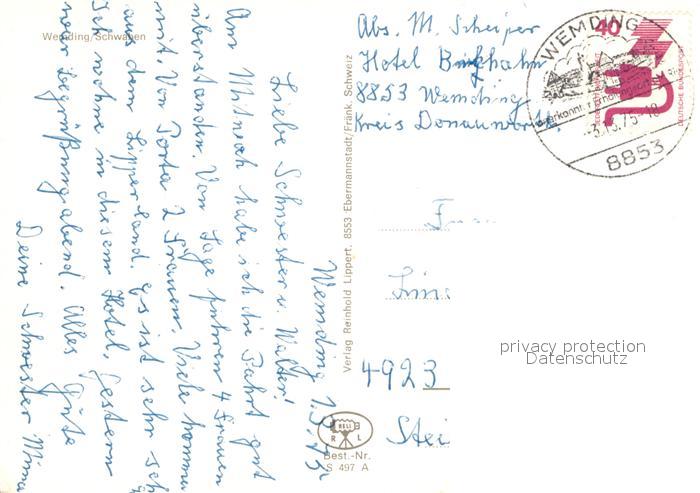 Wemding/Schwaben
Wemding 1.5.75
Liebe Schwester u. Walter!
Am Mitwoch habe ich die Fahrt gut
überstanden. Von Lage fuhren 4 Frauen
mit. Von 2 Frauen. Viele kommen
aus dem Lipperland. Es ist sehr schön
Ich wohne in diesem Hotel. Gestern
war Begrüßungabend. Alles Gute
Deine Schwester Minna
Verlag Reinhold Lippert, 8553 Ebermannstadt/Fränk. Schweiz
RELI
R L
Best.-Nr.
S 497 A
Abs. M. Scheiper
Hotel Birkhahn
8853 Wemding
Kreis Donauwörth
WEMDING
8853
40
DEUTSCHE BUNDESPOST
4923
privacy protection
Datenschutz